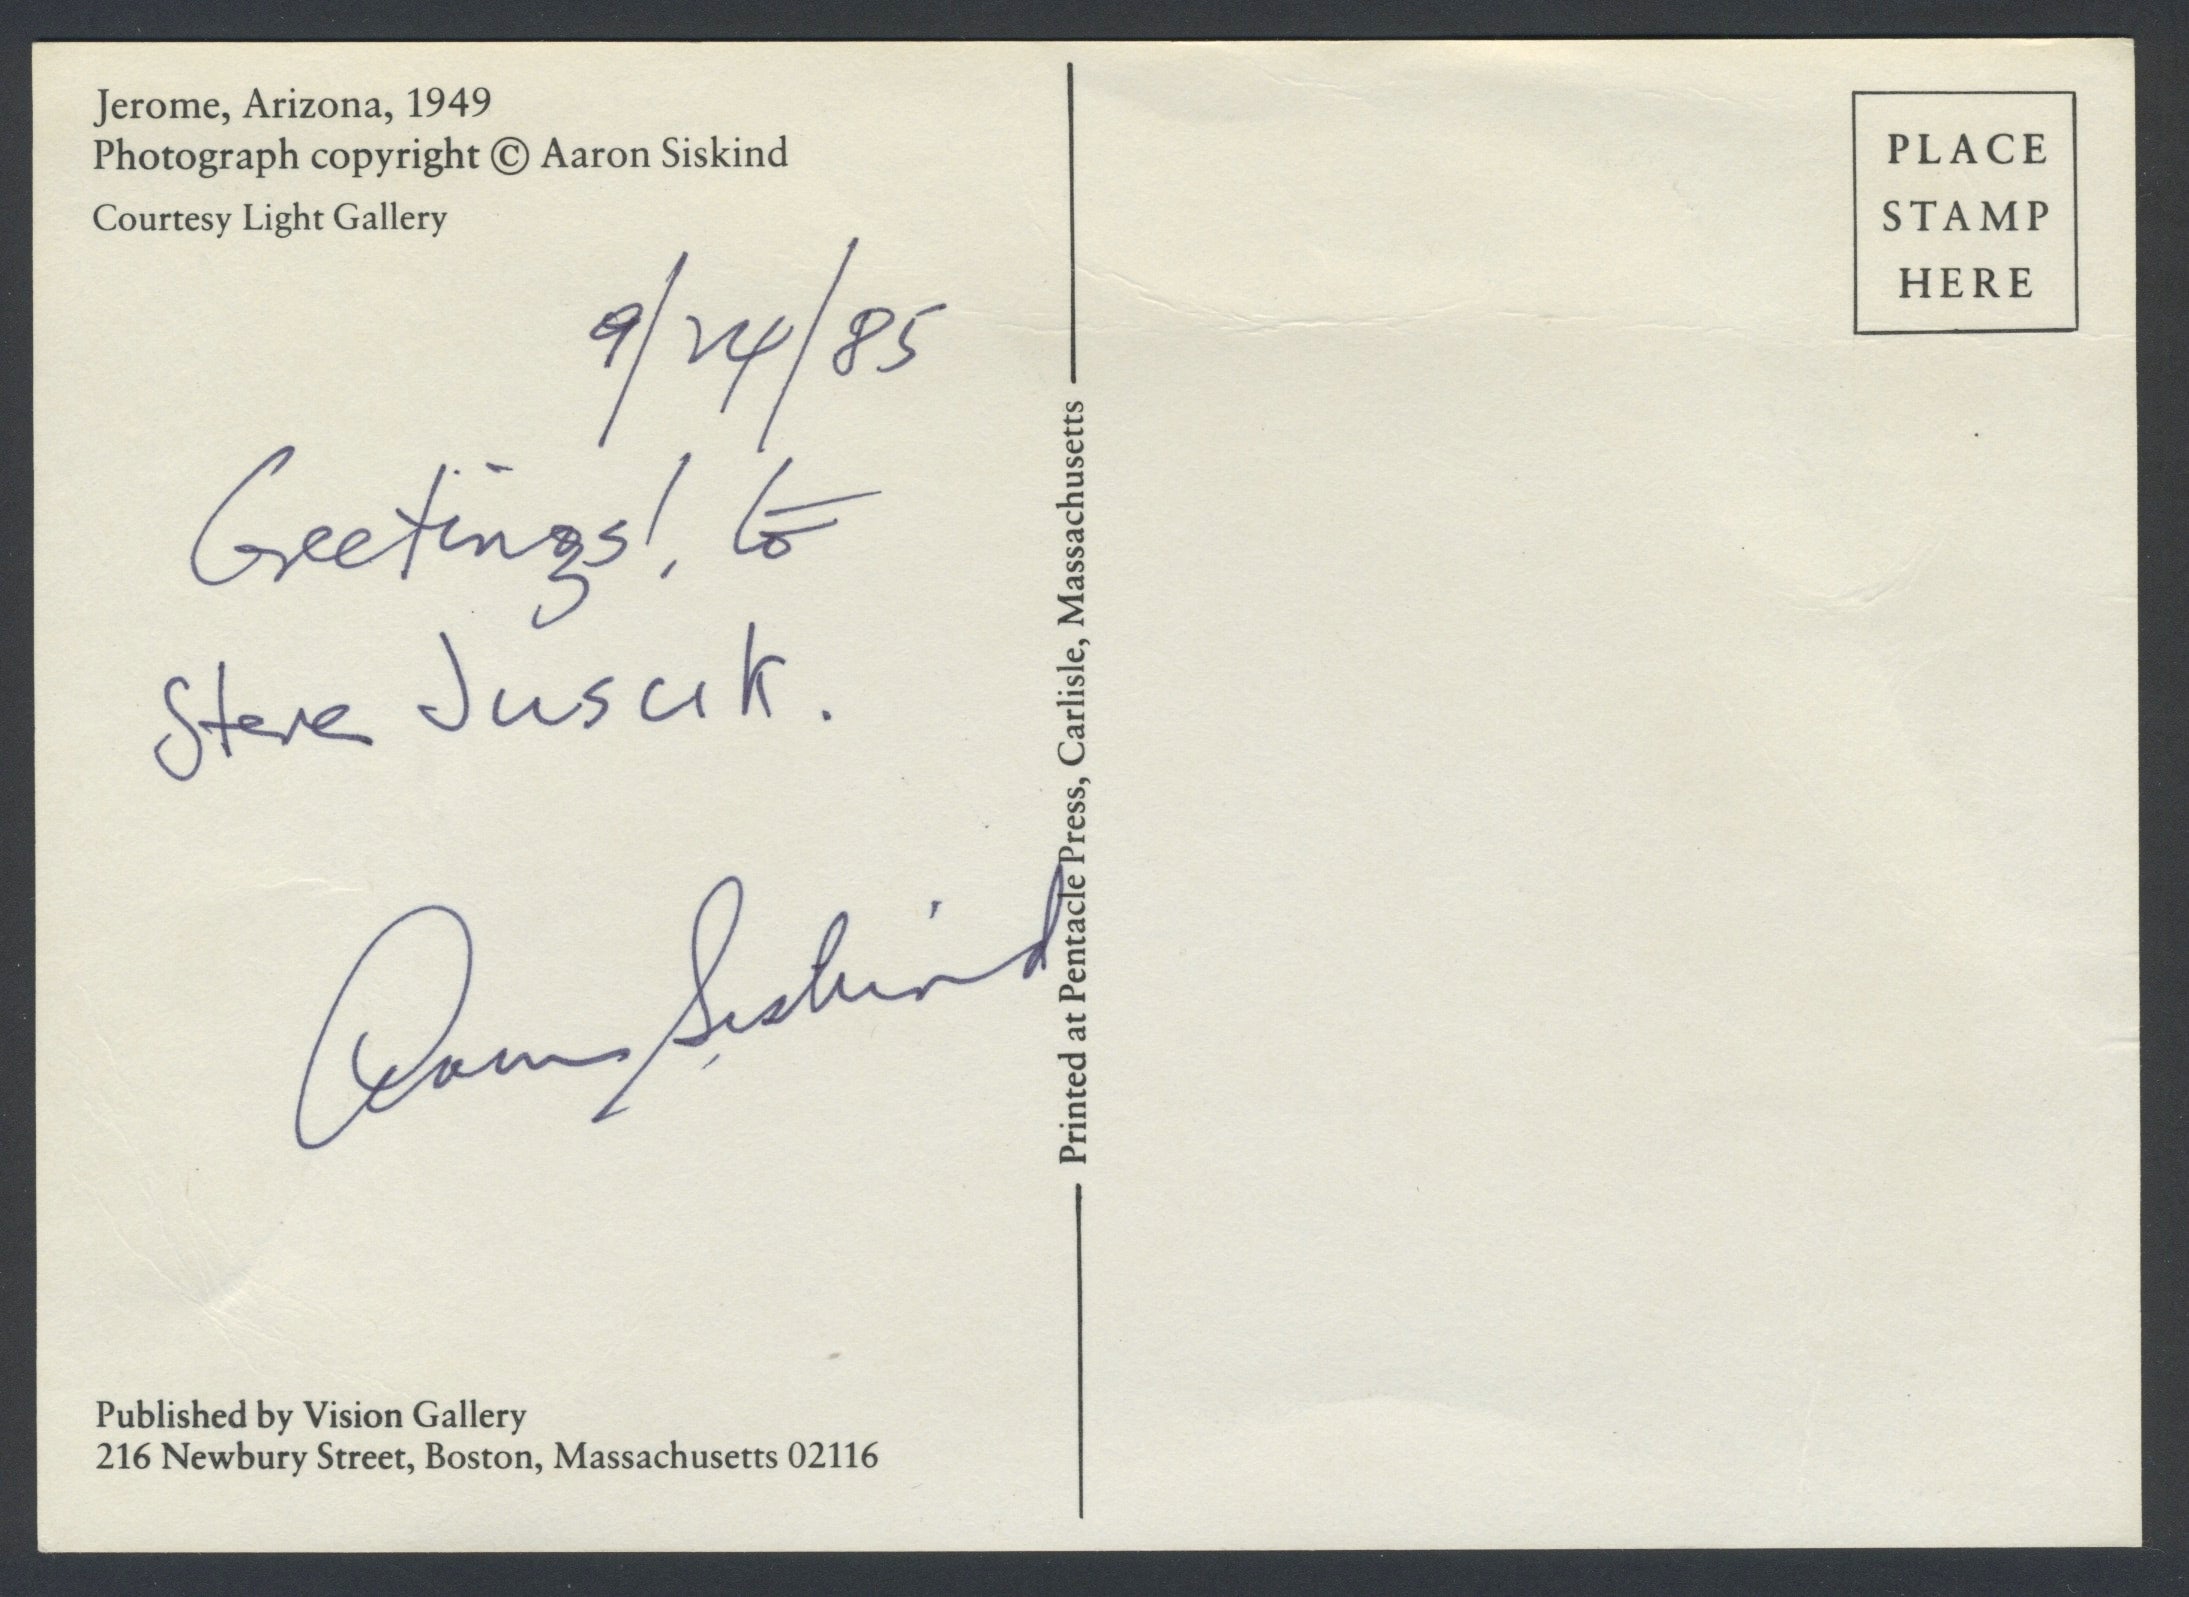 Jerome, Arizona, 1949
Photograph copyright © Aaron Siskind
Courtesy Light Gallery
9/24/85
Greetings! to
Steve Juscik.
Aaron Siskind
Published by Vision Gallery
216 Newbury Street, Boston, Massachusetts 02116
Printed at Pentacle Press, Carlisle, Massachusetts
PLACE
STAMP
HERE